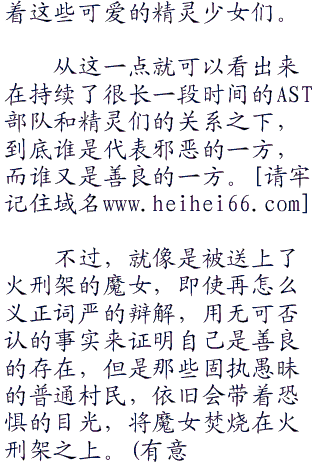 着这些可爱的精灵少女们。
从这一点就可以看出来
在持续了很长一段时间的AST
部队和精灵们的关系之下，
到底谁是代表邪恶的一方，
而谁又是善良的一方。[请牢
记住域名www.heihei66.com]
不过，就像是被送上了
火刑架的魔女，即使再怎么
义正词严的辩解，用无可否
认的事实来证明自己是善良
的存在，但是那些固执愚昧
的普通村民，依旧会带着恐
惧的目光，将魔女焚烧在火
刑架之上。(有意